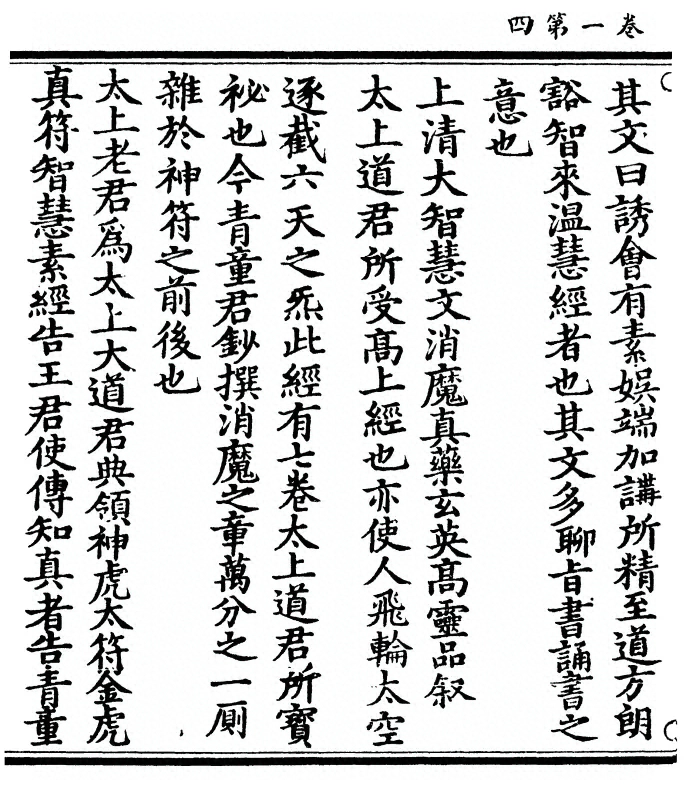 卷一第四
其文曰誘會有素娛端加講所精至道方朗
豁智來温慧經者也其文多聊旨書誦書之
意也
上清大智慧文消魔真藥玄英髙靈品叙
太上道君所受髙上經也亦使人飛輪太空
逐截六天之炁此經有七卷太上道君所寳
祕也今青童君鈔撰消魔之章萬分之一厠
雜於神符之前後也
太上老君爲太上大道君典領神虎太符金虎
真符智慧素經告王君使傳知真者告青童